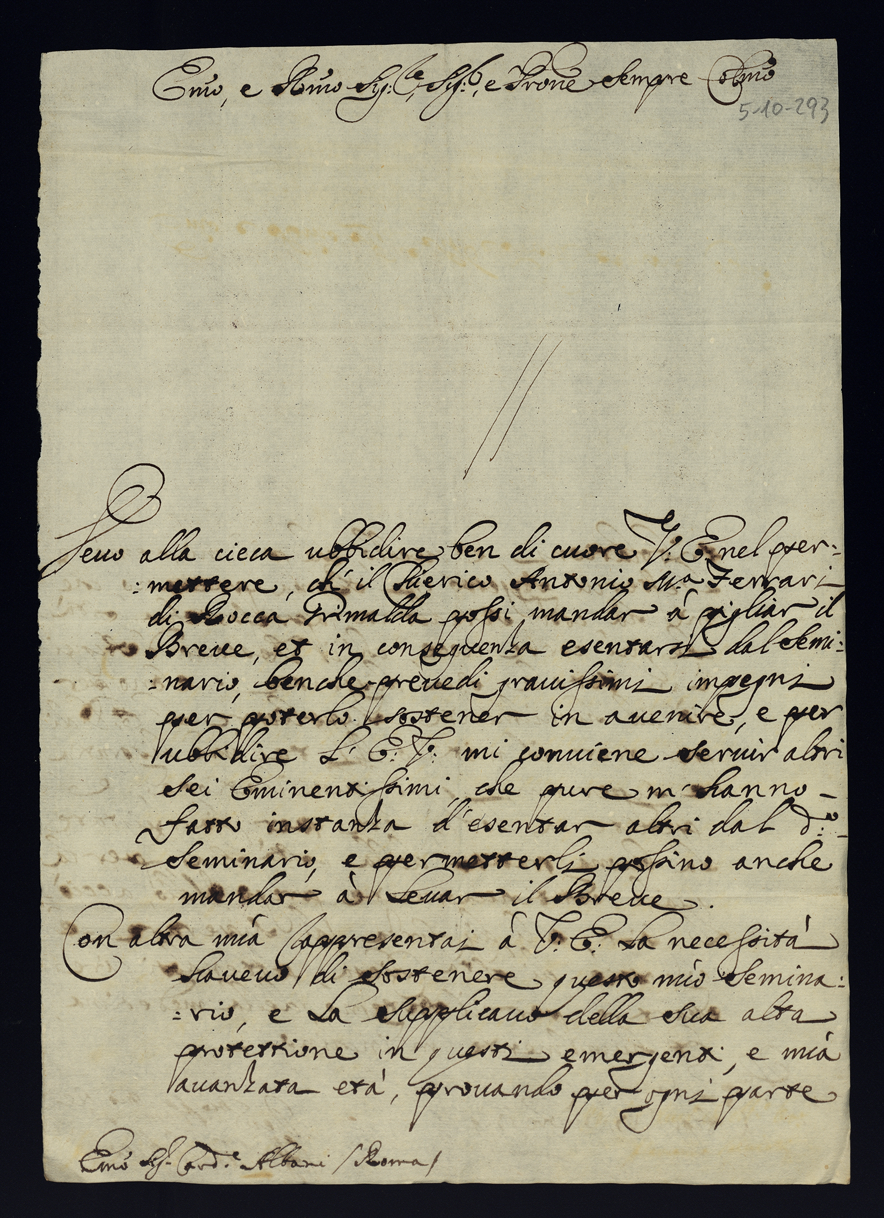 Emo, e Rmo Sig:re, Sig:r, e Prone Sempre Colmo
5-10-293
Devo alla cieca ubbidire ben di cuore V: E: nel per=
=mettere, ch' il Chierico Antonio Ma Ferrari
di Rocca Grimalda possi mandar à pigliar il
Breve, et in conseguenza esentarsi dal Semi=
=nario, benche prevedi gravissimi impegni
per poterlo sostener in avenire, e per
ubbidire L' E: V: mi conviene servir altri
sei Eminentissimi, che pure m' hanno
fatto instanza d'esentar altri dal d:o
Seminario, e permetterli possino anche
mandar à levar il Breve.
Con altra mià rappresentai à V: E: la necessità
havevo di sostenere questo mio Semina=
=rio, e la supplicavo della sua alta
protettione in questi emergenti, e mià
avanzata età, provando per ogni parte
Emo Sig.r Card.e Albani / Roma /